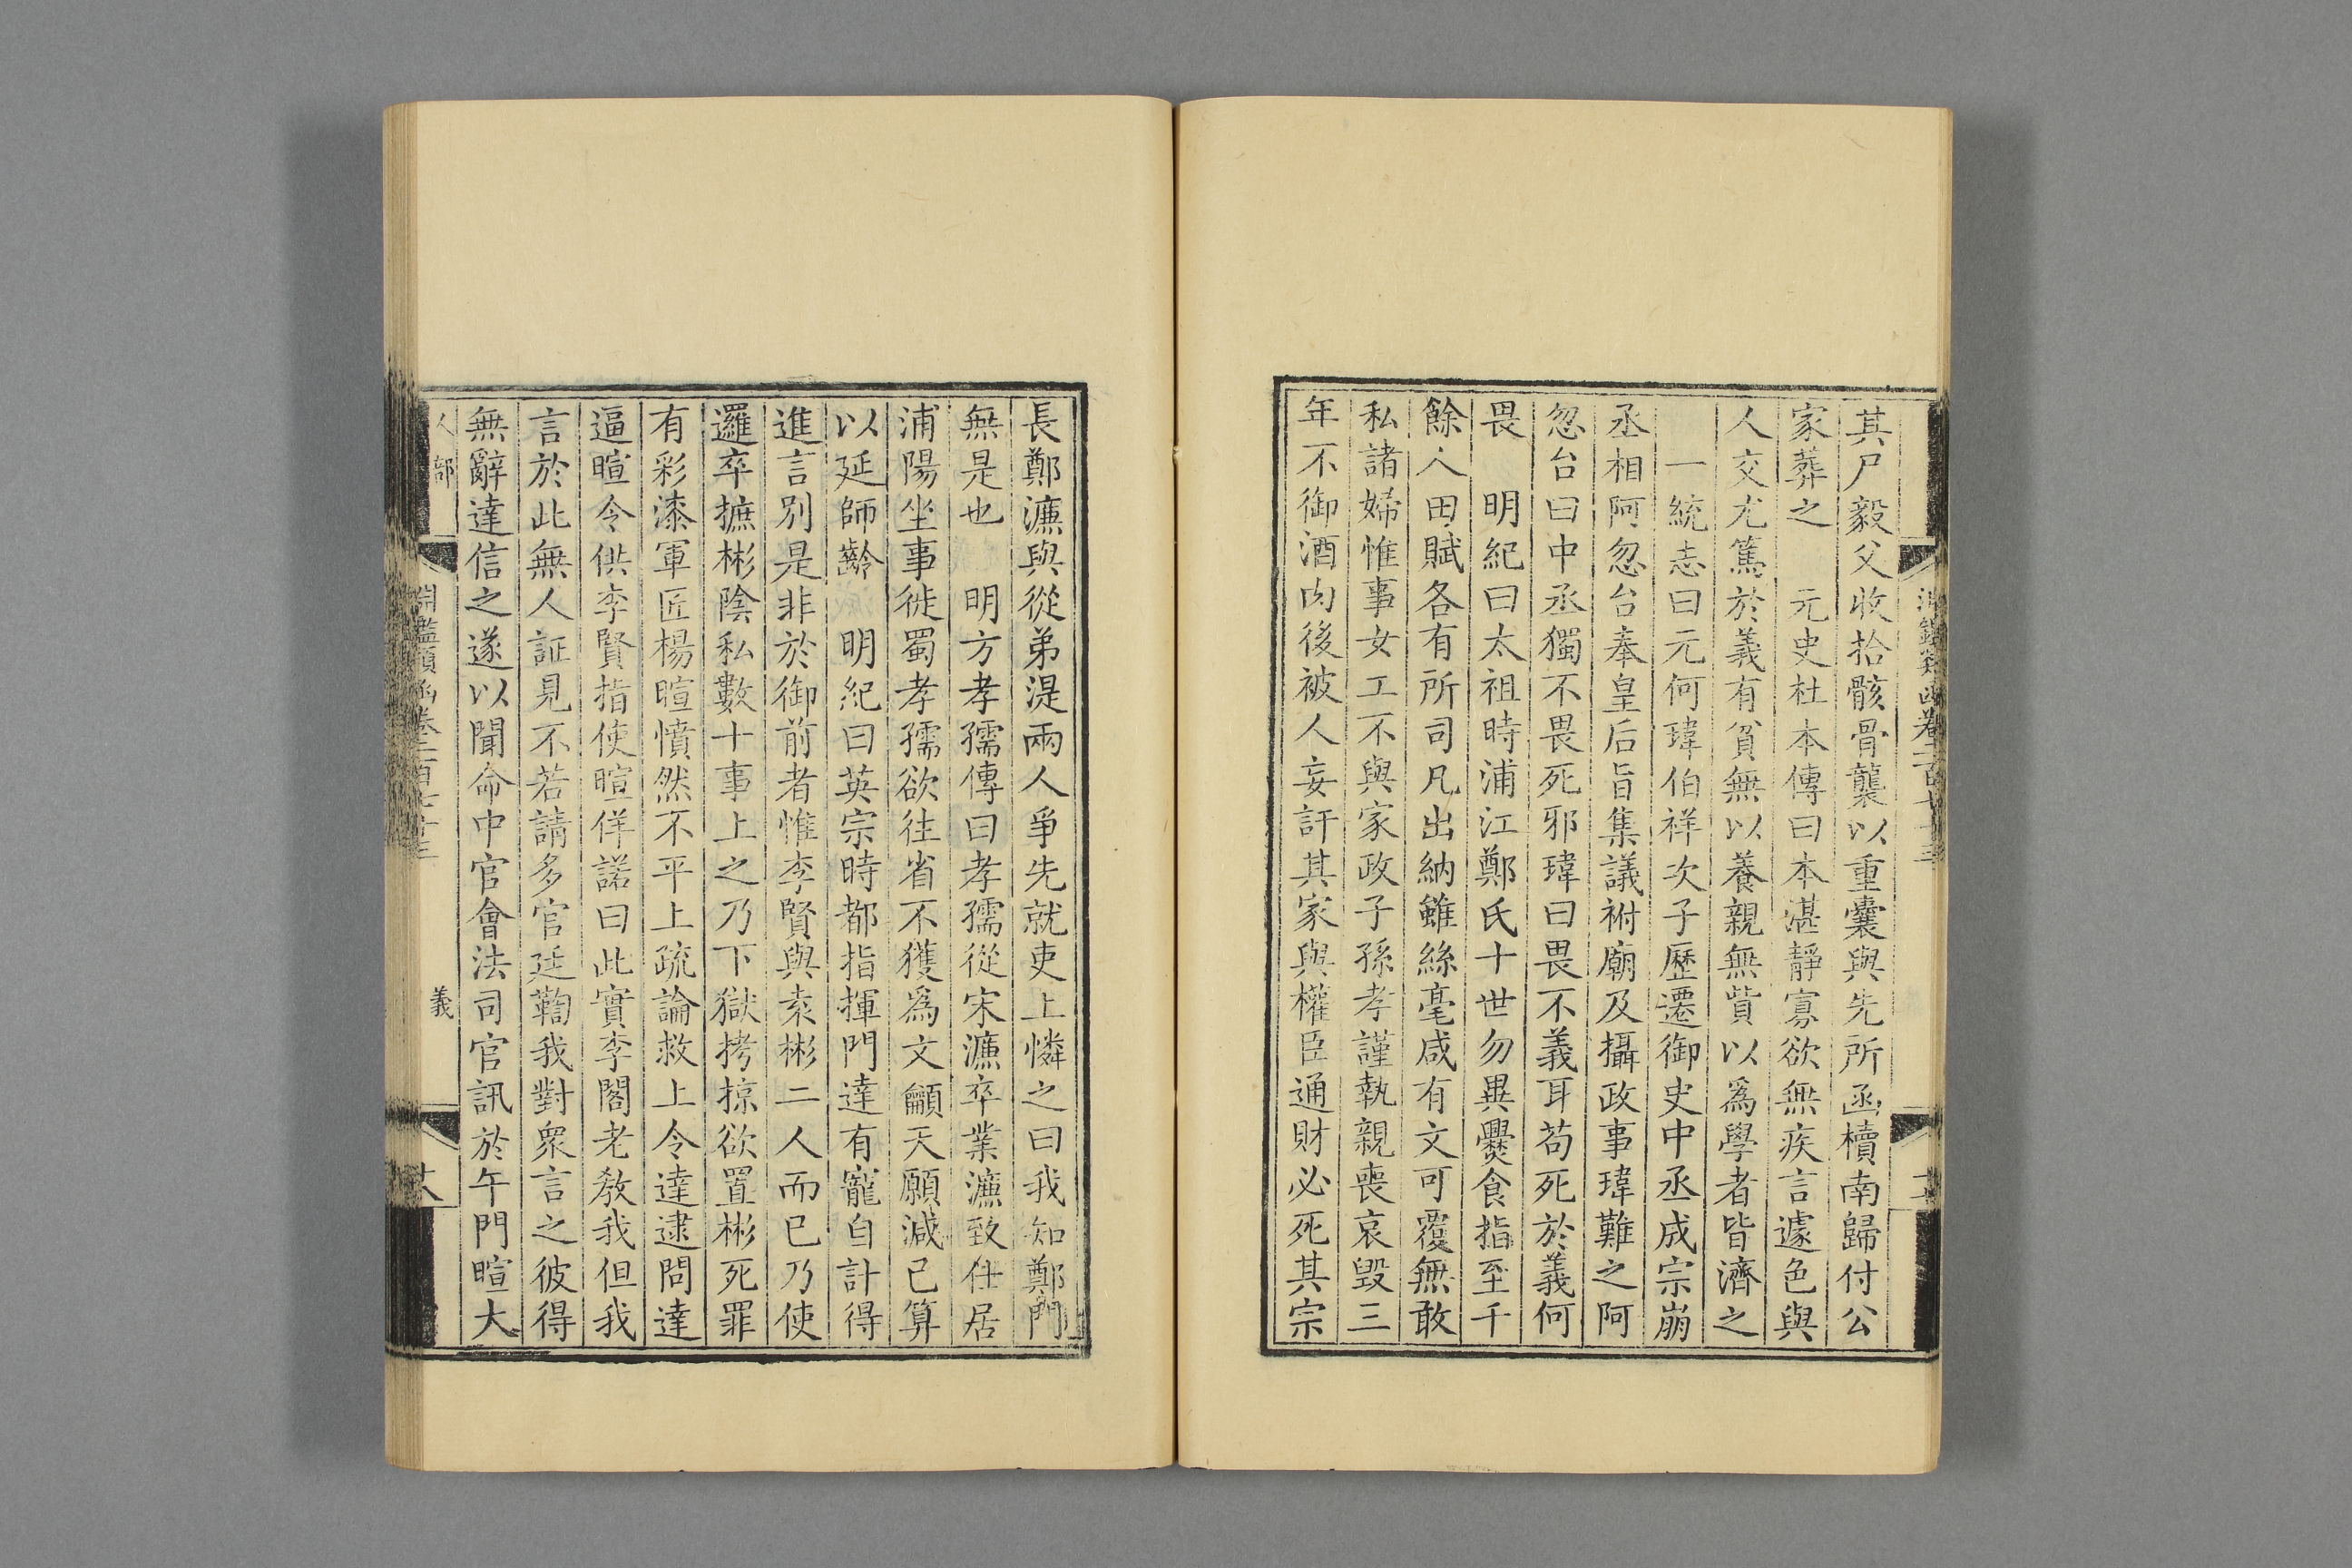 其尸毅父收拾骸骨襲以重囊與先所函櫝南歸付公
家葬之　元史杜本傳曰本湛靜寡欲無疾言遽色與
人交尤篤於義有貧無以養親無貲以爲學者皆濟之
一統志曰元何瑋伯祥次子歷遷御史中丞成宗崩
丞相阿忽台奉皇后旨集議祔廟及攝政事瑋難之阿
忽台曰中丞獨不畏死邪瑋曰畏不義耳苟死於義何
畏　明紀曰太祖時浦江鄭氏十世勿異爨食指至千
餘人田賦各有所司凡出納雖絲毫咸有文可覆無敢
私諸婦惟事女工不與家政子孫孝謹執親喪哀毀三
年不御酒肉後被人妄訐其家與權臣通財必死其宗
長鄭濂與從弟湜兩人爭先就吏上憐之曰我知鄭門
無是也　明方孝孺傳曰孝孺從宋濂卒業濂致仕居
浦陽坐事徙蜀孝孺欲往省不獲爲文籲天願減己算
以延師齡　明紀曰英宗時都指揮門達有寵自計得
進言別是非於御前者惟李賢與袁彬二人而已乃使
邏卒摭彬陰私數十事上之乃下獄拷掠欲置彬死罪
有彩漆軍匠楊暄憤然不平上疏論救上令達逮問達
逼暄令供李賢指使暄佯諾曰此實李閣老敎我但我
言於此無人証見不若請多官廷鞫我對衆言之彼得
無辭達信之遂以聞命中官會法司官訊於午門暄大
人部
淵鑑類函卷二百七十三
義